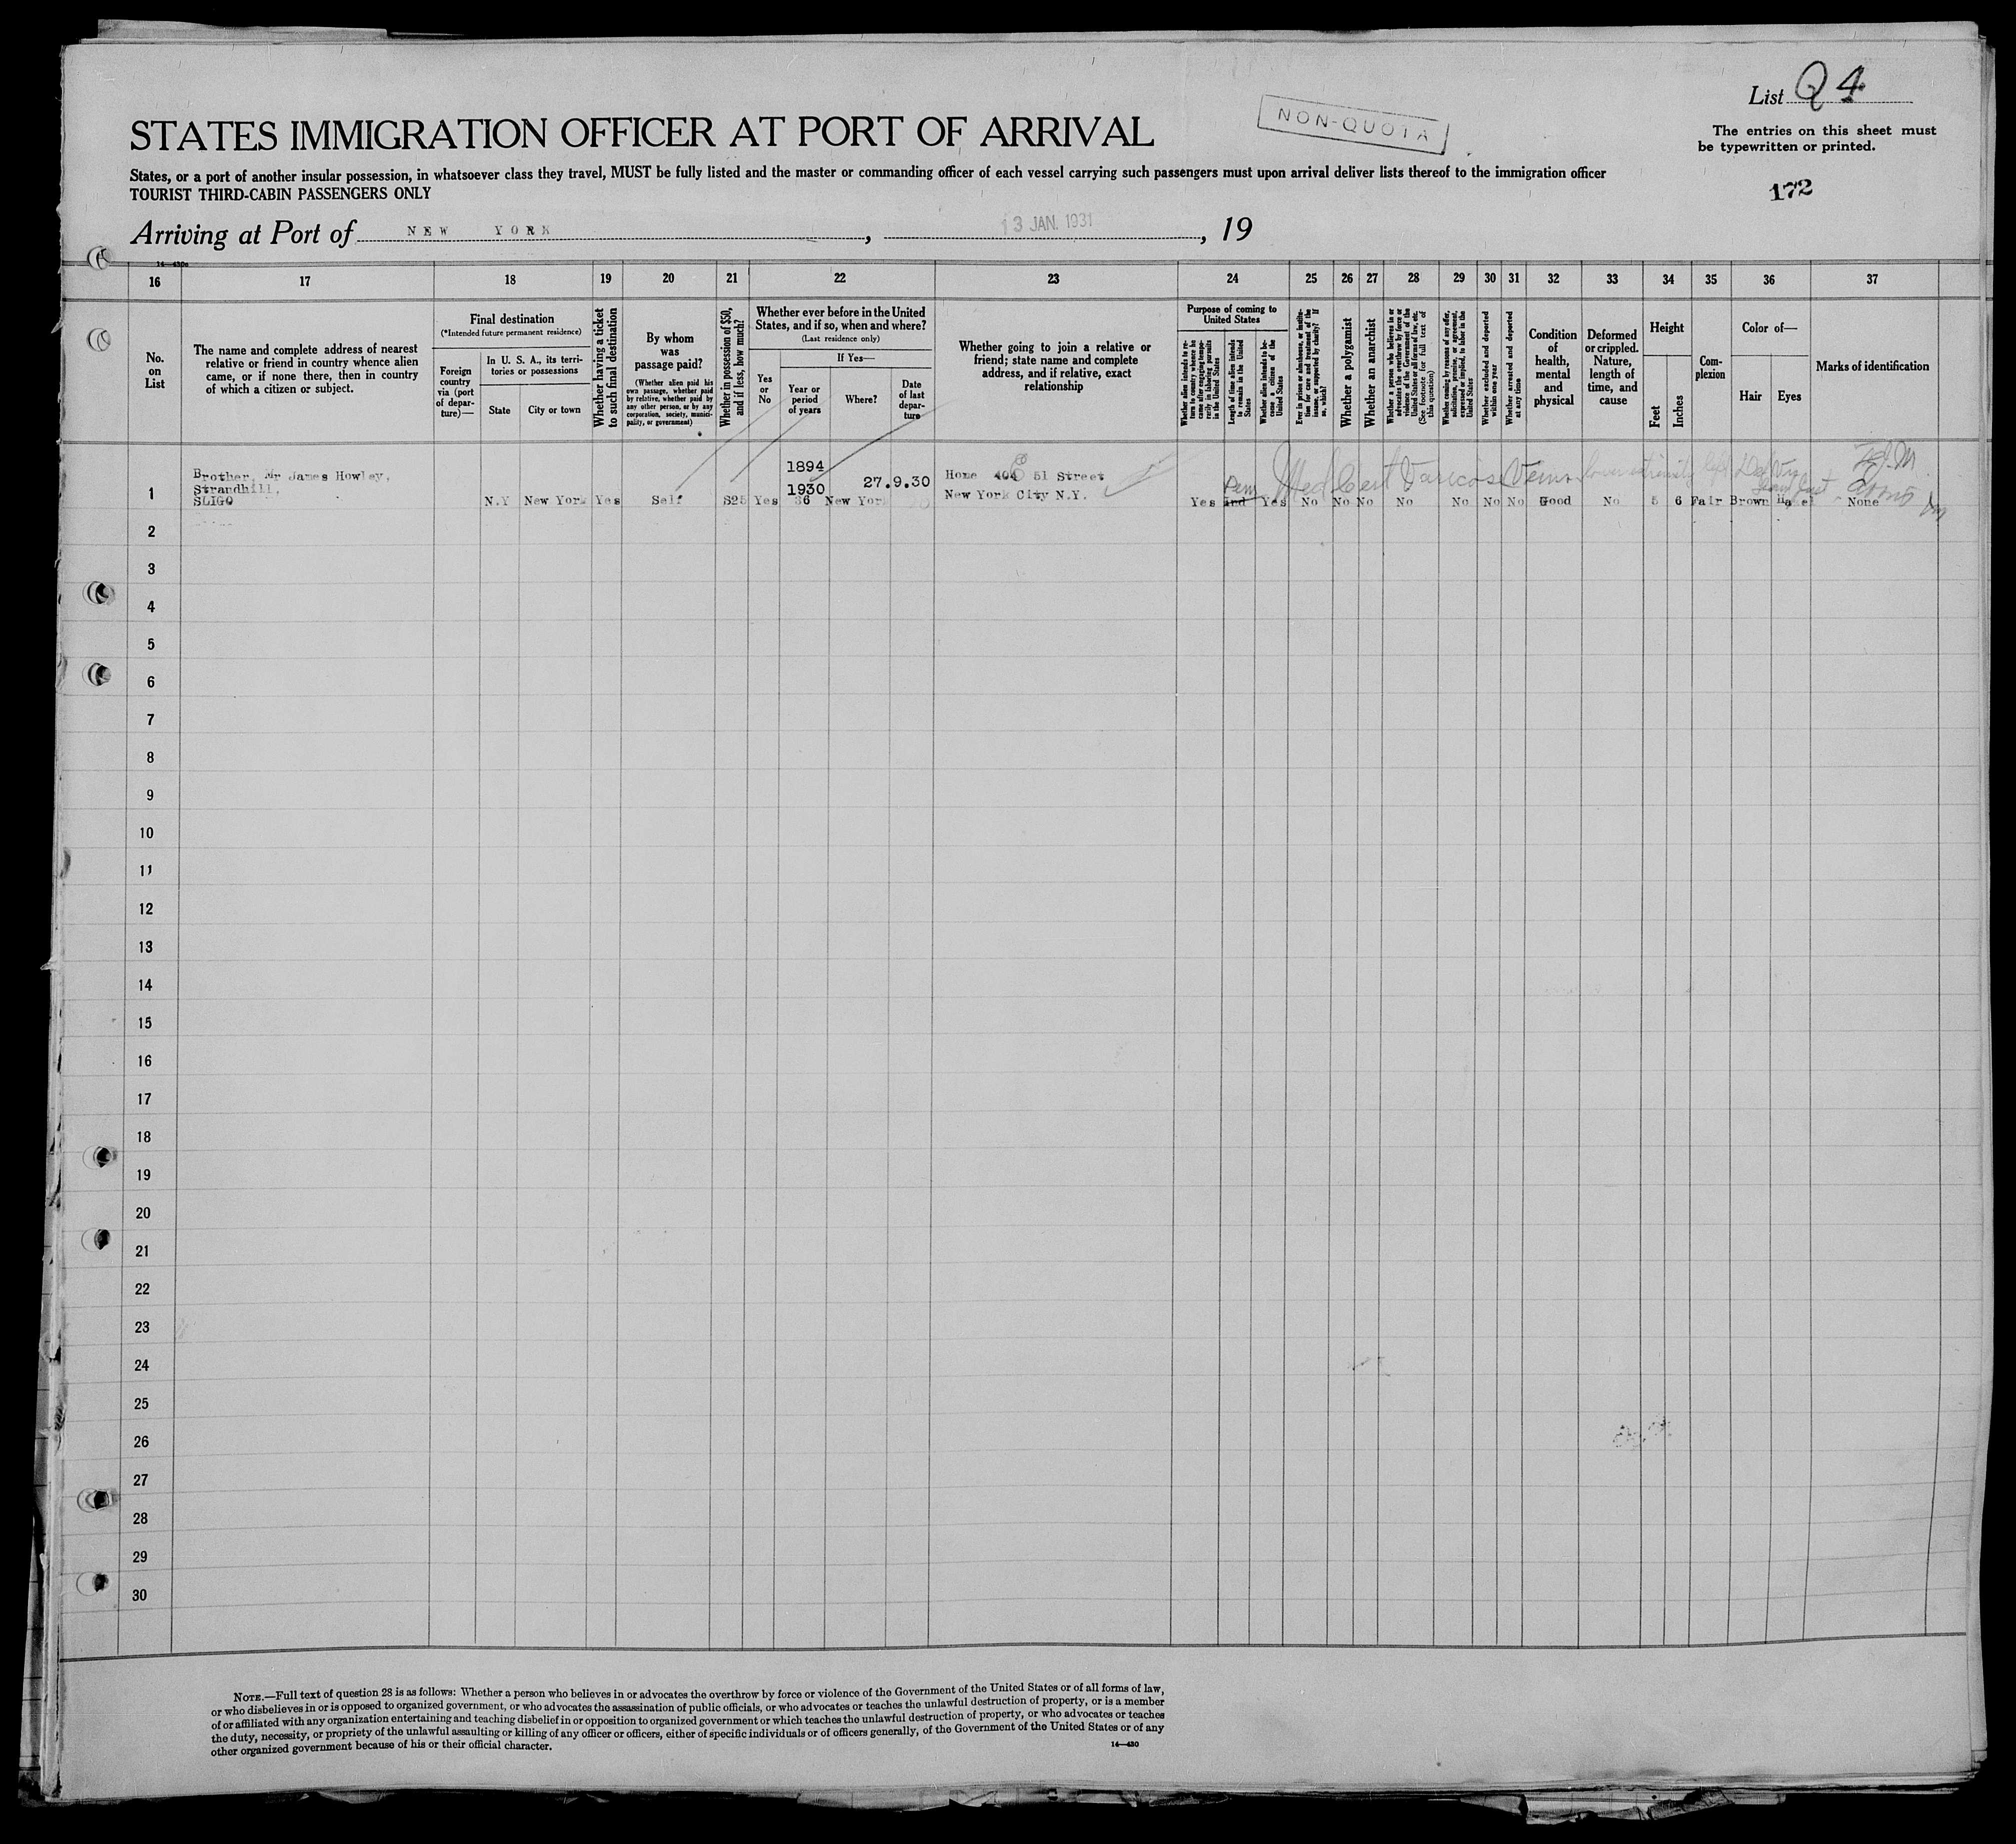 List Q 4
The entries on this sheet must
be typewritten or printed.
172
NON-QUOTA
STATES IMMIGRATION OFFICER AT PORT OF ARRIVAL
States, or a port of another insular possession, in whatsoever class they travel, MUST be fully listed and the master or commanding officer of each vessel carrying such passengers must upon arrival deliver lists thereof to the immigration officer
TOURIST THIRD-CABIN PASSENGERS ONLY
Arriving at Port of NEW YORK, 13 JAN. 1931, 19
14—430a
16 17 18 19 20 21 22 23 24 25 26 27 28 29 30 31 32 33 34 35 36 37
No.
on
List
The name and complete address of nearest
relative or friend in country whence alien
came, or if none there, then in country
of which a citizen or subject.
Final destination
(*Intended future permanent residence)
Foreign
country
via (port
of depar-
ture)—
In U. S. A., its terri-
tories or possessions
State
City or town
Whether having a ticket
to such final destination
By whom
was
passage paid?
(Whether alien paid his
own passage, whether paid
by relative, whether paid by
any other person, or by any
corporation, society, munici-
pality, or government)
Whether in possession of $50,
and if less, how much?
Whether ever before in the United
States, and if so, when and where?
(Last residence only)
Yes
or
No
If Yes—
Year or
period
of years
Where?
Date
of last
depar-
ture
Whether going to join a relative or
friend; state name and complete
address, and if relative, exact
relationship
Purpose of coming to
United States
Whether alien intends to re-
turn to country whence he
came after engaging tempo-
rarily in laboring pursuits
in the United States
Length of time alien intends
to remain in the United
States
Whether alien intends to be-
come a citizen of the
United States
Ever in prison or almshouse, or institu-
tion for care and treatment of the
insane, or supported by charity? If
so, which?
Whether a polygamist
Whether an anarchist
Whether a person who believes in or
advocates the overthrow by force or
violence of the Government of the
United States or all forms of law, etc.
(See footnote for full text of
this question)
Whether coming by reason of any offer,
solicitation, promise, or agreement,
expressed or implied, to labor in the
United States
Whether excluded and deported
within one year
Whether arrested and deported
at any time
Condition
of
health,
mental
and
physical
Deformed
or crippled.
Nature,
length of
time, and
cause
Height
Feet
Inches
Com-
plexion
Color of—
Hair
Eyes
Marks of identification
1
Brother, Mr James Howley,
Strandhill,
SLIGO
N.Y New York Yes Self $25 Yes
1894
1930
36 New York
27.9.30
Home 404 E 51 Street
New York City N.Y.
Yes Ind Yes No No No No No No No Good No 5 6 Fair Brown Hazel None
Perm
Med Cert Varicose Veins
2
3
4
5
6
7
8
9
10
11
12
13
14
15
16
17
18
19
20
21
22
23
24
25
26
27
28
29
30
NOTE.—Full text of question 28 is as follows: Whether a person who believes in or advocates the overthrow by force or violence of the Government of the United States or of all forms of law,
or who disbelieves in or is opposed to organized government, or who advocates the assassination of public officials, or who advocates or teaches the unlawful destruction of property, or is a member
of or affiliated with any organization entertaining and teaching disbelief in or opposition to organized government or which teaches the unlawful destruction of property, or who advocates or teaches
the duty, necessity, or propriety of the unlawful assaulting or killing of any officer or officers, either of specific individuals or of officers generally, of the Government of the United States or of any
other organized government because of his or their official character.
14—430